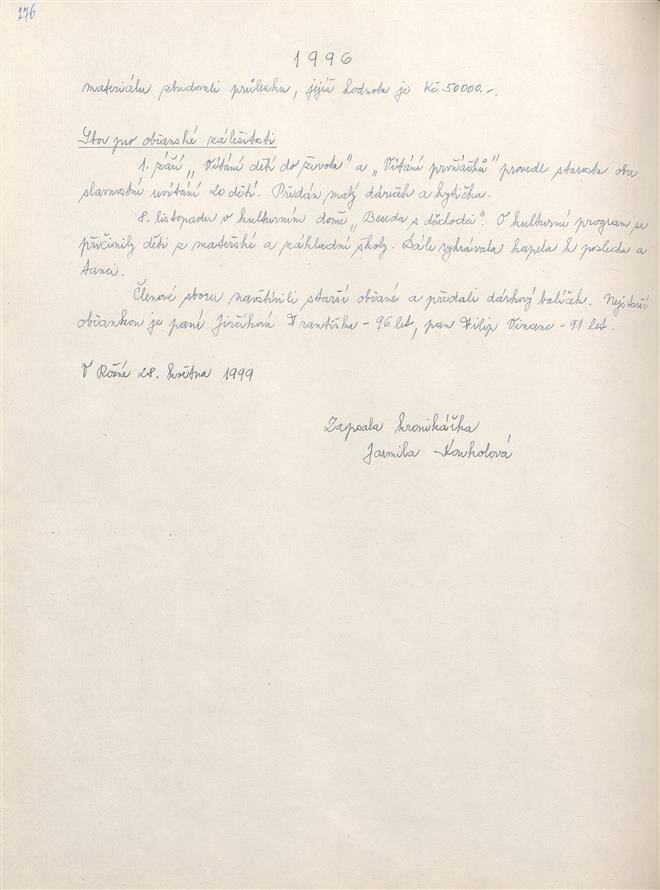 276
1996
materiálu zbudovali průlezku, jejíž hodnota je Kč 50 000.-.
Sbor pro občanské záležitosti
1. září „Vítání dětí do života" a „Vítání prvňáčků" provedl starosta obce
slavnostní uvítání 20 dětí. Předán malý dáreček a kytička.
8. listopadu v kulturním domě „Beseda s důchodci". O kulturní program se
přičinily děti z mateřské a základní školy. Dále vyhrávala kapela k poslechu a
tanci.
Členové sboru navštívili starší občané a předali dárkový balíček. Nejstarší
občankou je paní Jiričková Františka - 96 let, pan Filip Vincenc - 91 let.
V 28. května 1999
Zapsala kronikářka
Jarmila Koukolová